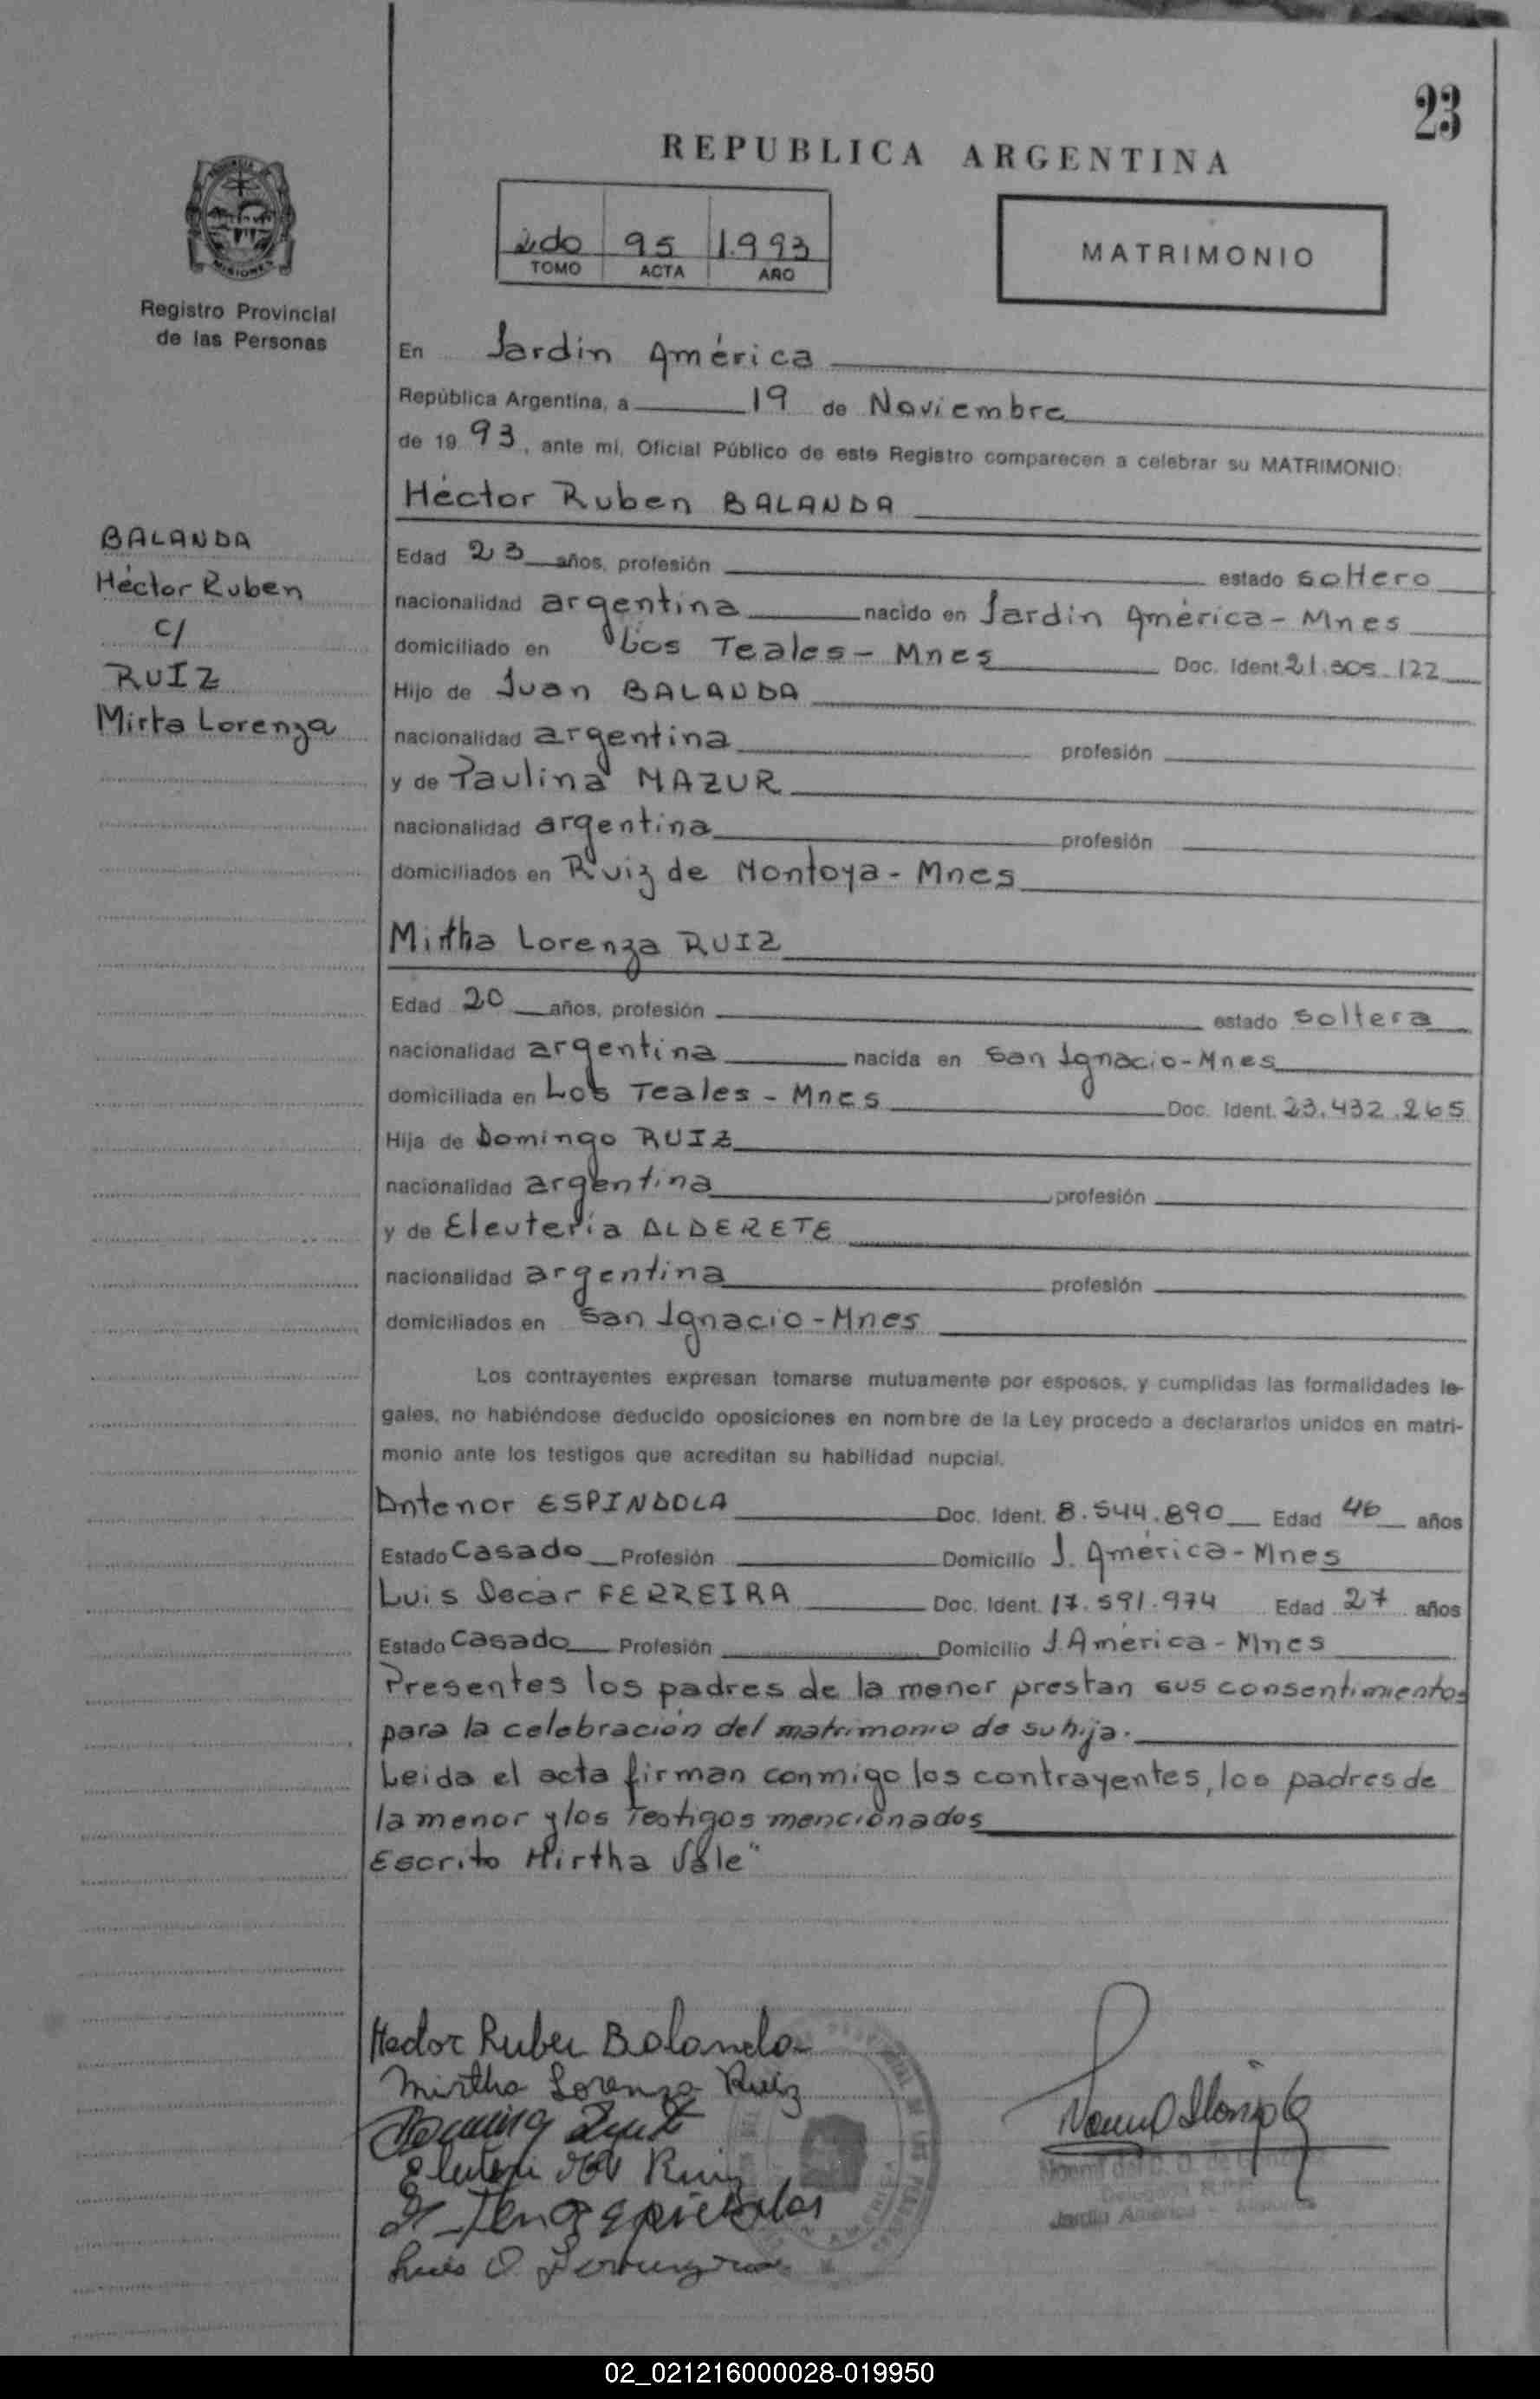 23
REPUBLICA ARGENTINA
2do 95 1.993
TOMO ACTA AÑO
MATRIMONIO
MISIONES
Registro Provincial
de las Personas
En Jardín América
República Argentina, a 19 de Noviembre
de 19 93, ante mí, Oficial Público de este Registro comparecen a celebrar su MATRIMONIO:
Héctor Ruben BALANDA
BALANDA
Héctor Ruben
c/
RUIZ
Mirta Lorenza
Edad 23 años, profesión estado soltero
nacionalidad argentina nacido en Jardín América - Mnes
domiciliado en Los Teales - Mnes Doc. Ident. 21.305.122
Hijo de Juan BALANDA
nacionalidad argentina profesión
y de Paulina MAZUR
nacionalidad argentina profesión
domiciliados en Ruiz de Montoya - Mnes
Mirtha Lorenza RUIZ
Edad 20 años, profesión estado soltera
nacionalidad argentina nacida en San Ignacio - Mnes
domiciliada en Los Teales - Mnes Doc. Ident. 23.432.265
Hija de Domingo RUIZ
nacionalidad argentina profesión
y de Eleuteria ALDERETE
nacionalidad argentina profesión
domiciliados en San Ignacio - Mnes
Los contrayentes expresan tomarse mutuamente por esposos, y cumplidas las formalidades le-
gales, no habiéndose deducido oposiciones en nombre de la Ley procedo a declararlos unidos en matri-
monio ante los testigos que acreditan su habilidad nupcial.
Antenor ESPINDOLA Doc. Ident. 8.544.890 Edad 46 años
Estado Casado Profesión Domicilio J. América - Mnes
Luis Oscar FERREIRA Doc. Ident. 17.591.974 Edad 27 años
Estado Casado Profesión Domicilio J. América - Mnes
Presentes los padres de la menor prestan sus consentimientos
para la celebración del matrimonio de su hija.
Leida el acta firman conmigo los contrayentes, los padres de
la menor y los Testigos mencionados
Escrito Mirtha Vale"
Hector Ruben Balanda
Mirtha Lorenza Ruiz
Ruiz
Luis O
Jardín América - Misiones
02_021216000028-019950